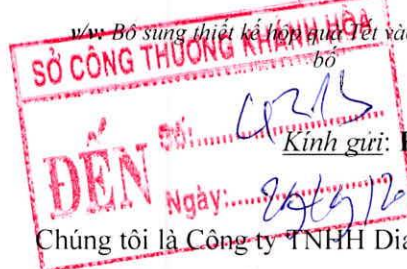 v/v: Bổ sung thiết kế hộp quà Tết và
bố
SỞ CÔNG THƯƠNG KHÁNH HÒA
ĐẾN
Số:
Kính gửi:
Ngày:
Chúng tôi là Công ty TNHH Dia